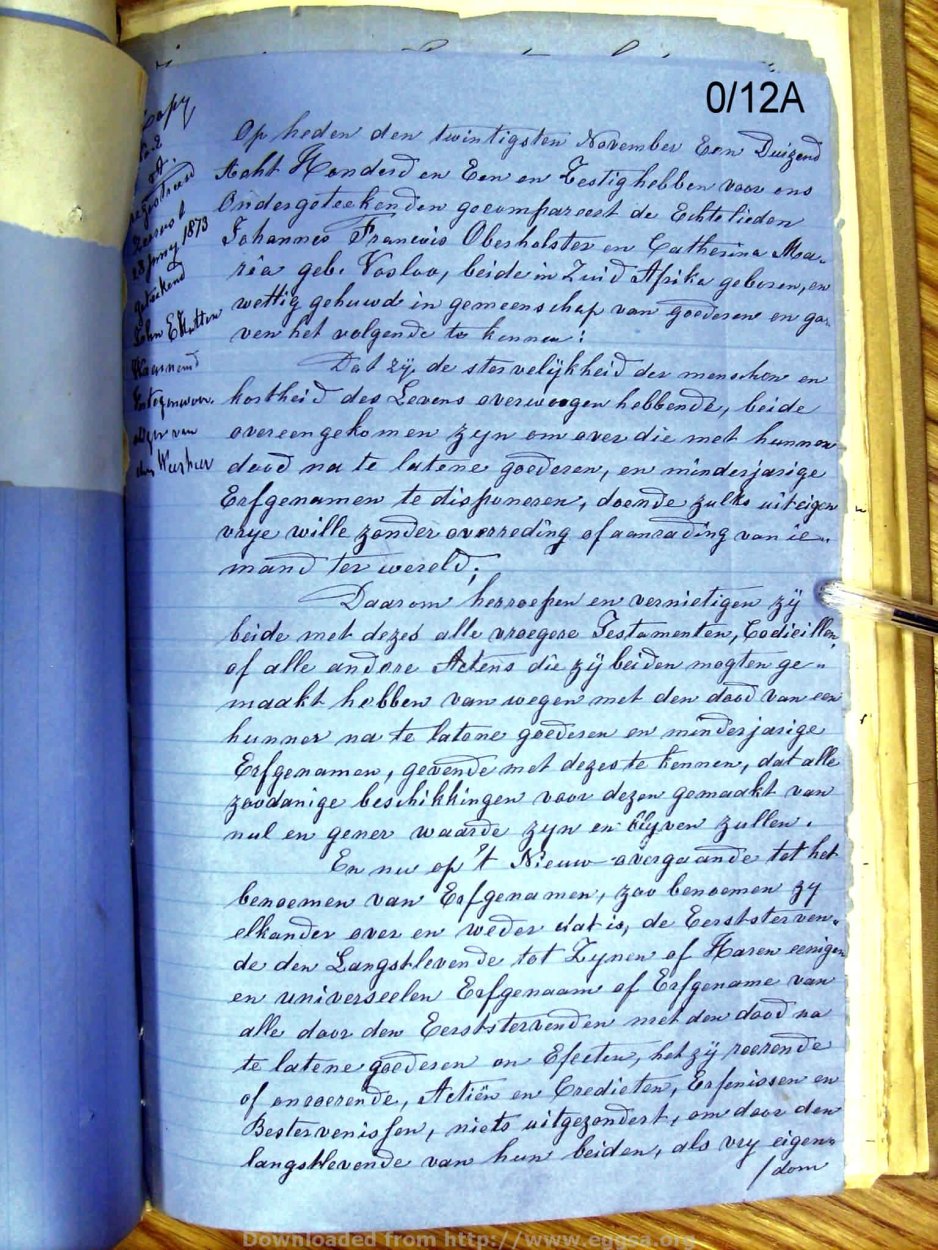 0/12A
Copy
No 2
geregistreerd
Zeerust
28 Juny 1873
geteekend
John E Hutton
Waarnemd
van
Op heden den twintigsten November Een Duizend
Acht Honderd en Een en Zestig hebben voor ons
Ondergeteekenden gecompareert de Echtelieden
Johannes Francois Oberholster en Catherina Ma-
ria geb. Vosloo, beide in Zuid Afrika geboren, en
wettig gehuwde in gemeenschap van goederen en ga-
ven het volgende te kennen:
Dat zij, de stervelijkheid der menschen en
kortheid des Levens overwoogen hebbende, beide
overeengekomen zyn om over die met hunner
dood na te latene goederen, en minderjarige
Erfgenamen te disponeren, doende zulks uit eigen
vrye wille zonder overreding of aanrading van ie-
mand ter wereld.
Daarom herroepen en vernietigen zij
beide met dezes alle vroegere Testamenten, Codicillen
of alle andere Actens die zij beiden mogten ge-
maakt hebben van wegen met den dood van een
hunner na te latene goederen en minderjarige
Erfgenamen, gevende met dezes te kennen, dat alle
zoodanige beschikkingen voor dezen gemaakt van
nul en gener waarde zyn en blyven zullen.
En nu op 't Nieuw overgaande tot het
benoemen van Erfgenamen, zoo benoemen zy
elkander over en weder dat is, de Eerststerven-
de den Langstlevende tot Zynen of Haren eenigen
en universeelen Erfgenaam of Erfgename van
alle door den Eerststervenden met den dood na
te latene goederen en Efecten, het zij roerende
of onroerende, Actiën en Credieten, Erfenissen en
Bestervenissen, niets uitgezondert, om door den
langstlevende van hun beiden, als vry eigen-
/dom
Downloaded from http://www.eggsa.org